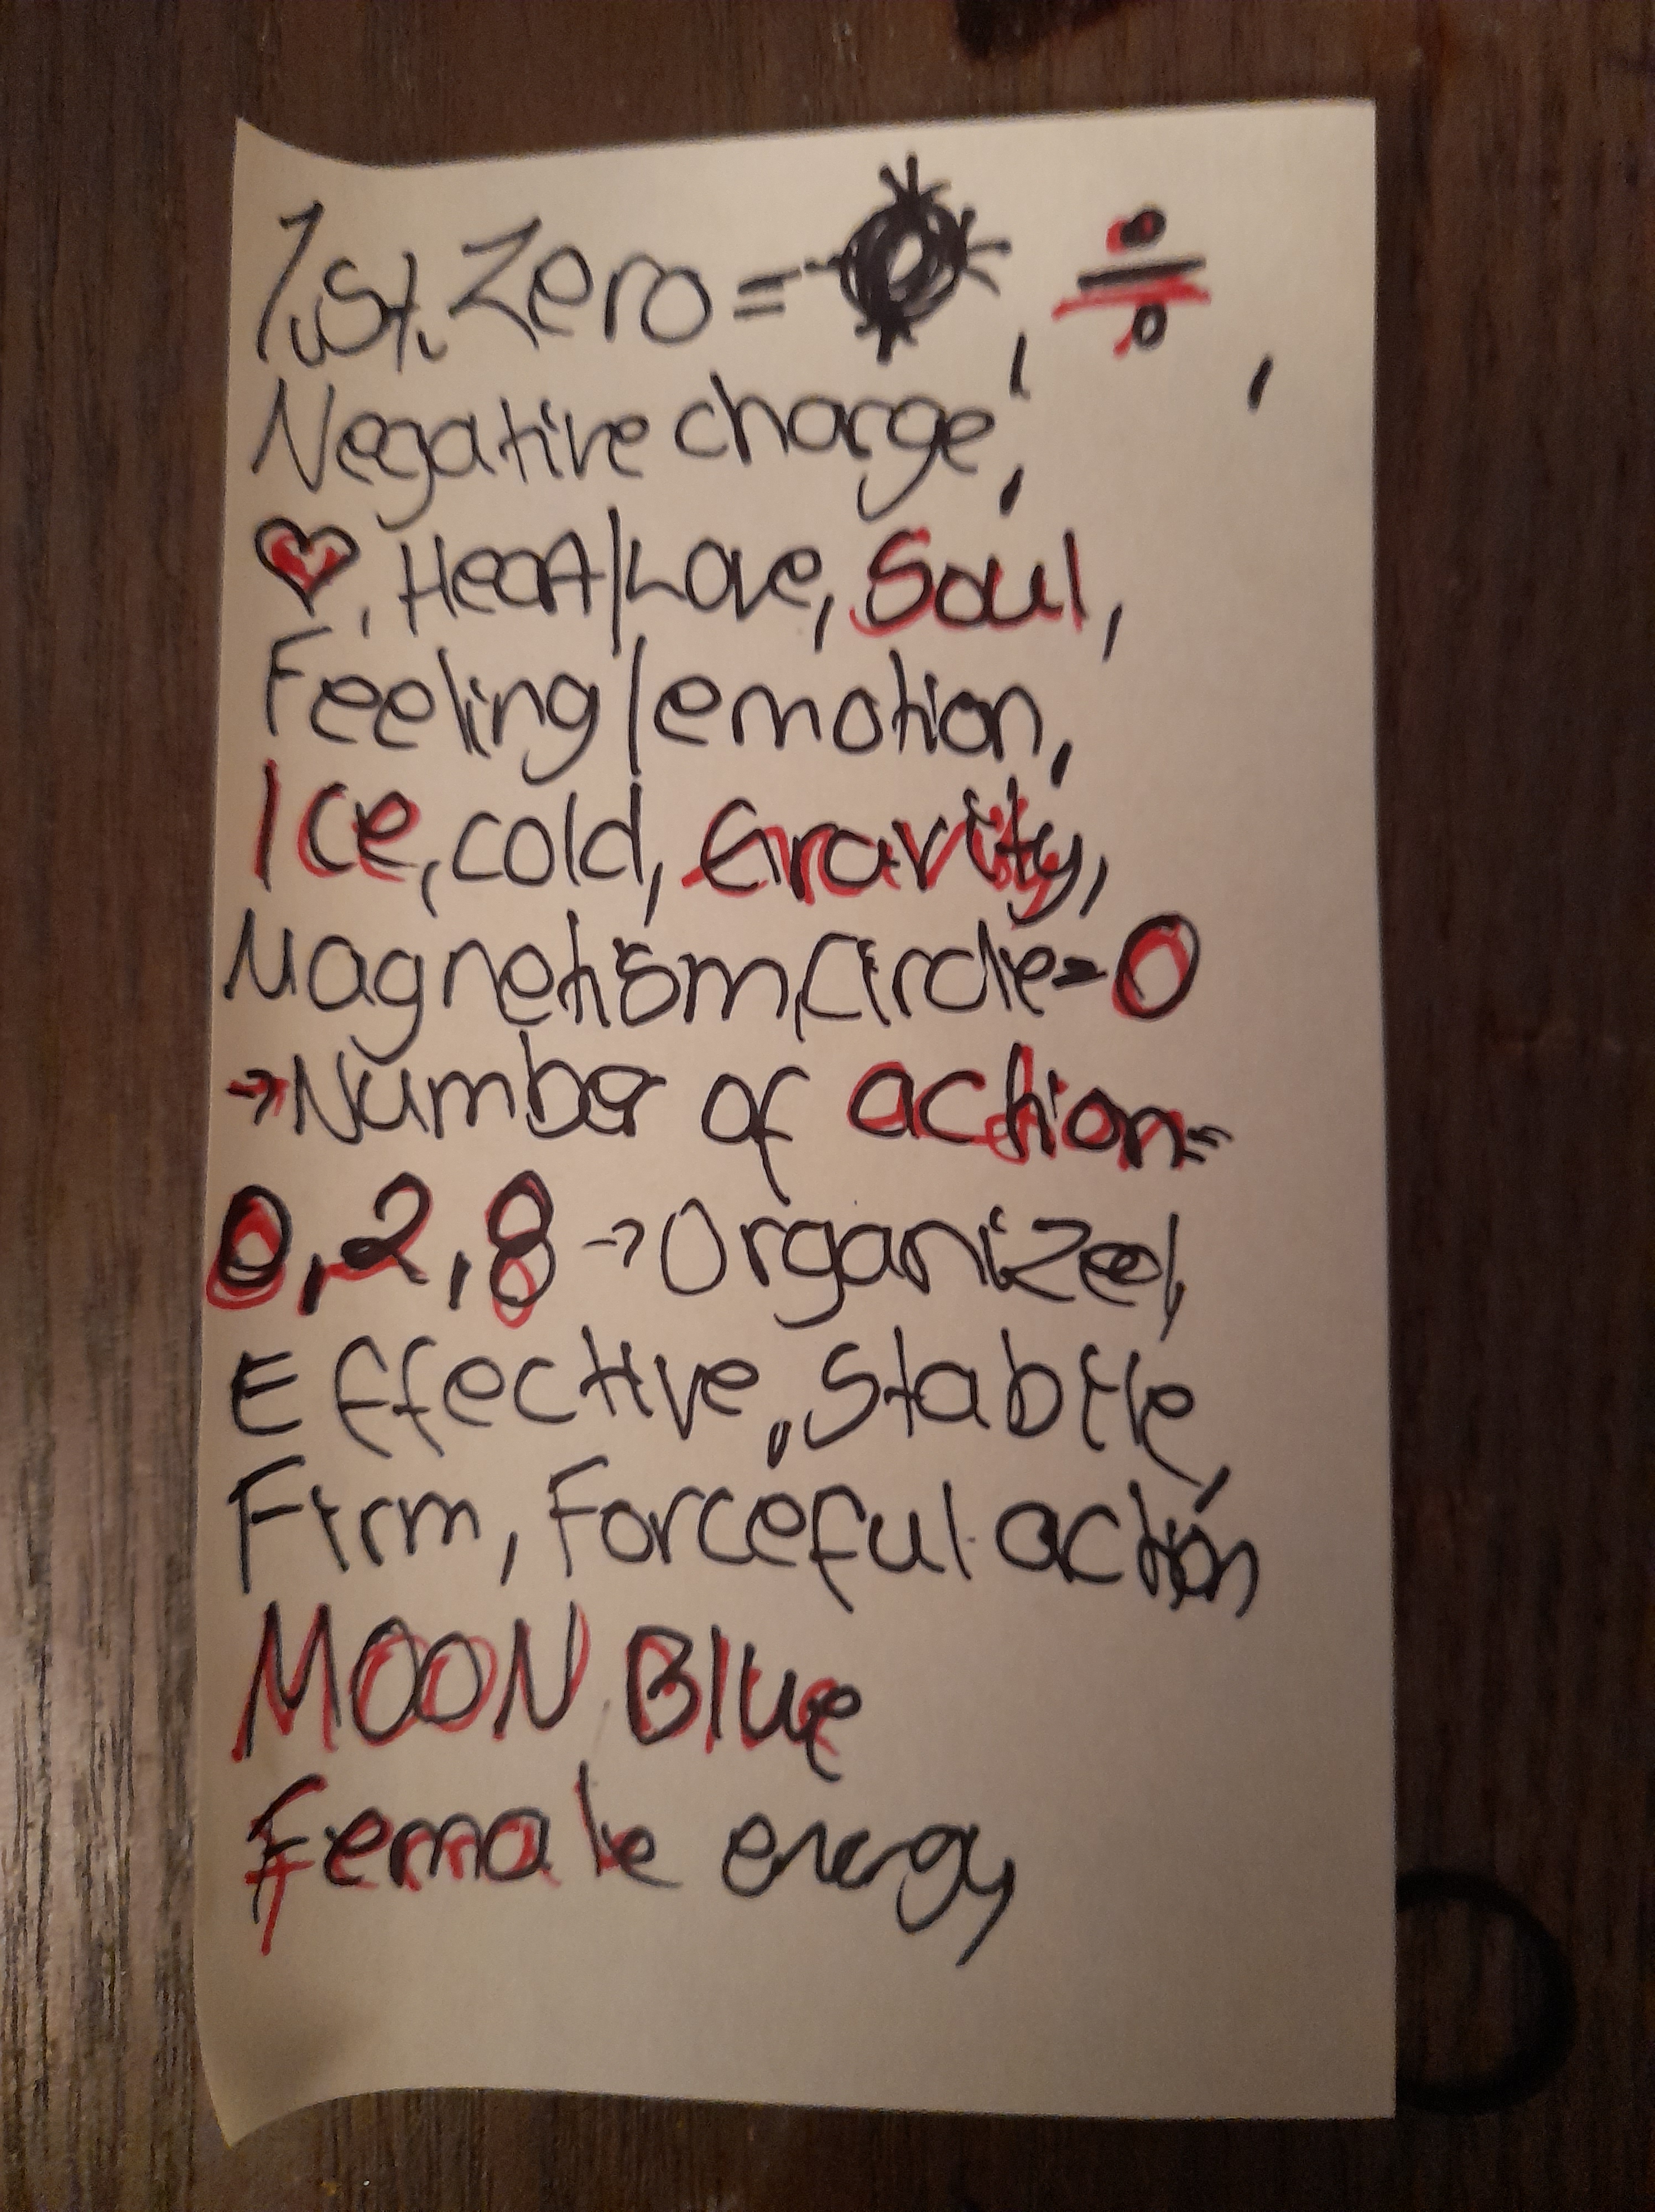 1.st. Zero = , ÷ ,
Negative charge,
♥, Heart/Love, Soul,
Feeling/emotion,
Ice, cold, Gravity,
Magnetism, Circle=0
→Number of action=
0,2,8→Organized,
Effective, Stable,
Firm, Forceful action
MOON Blue
Female energy